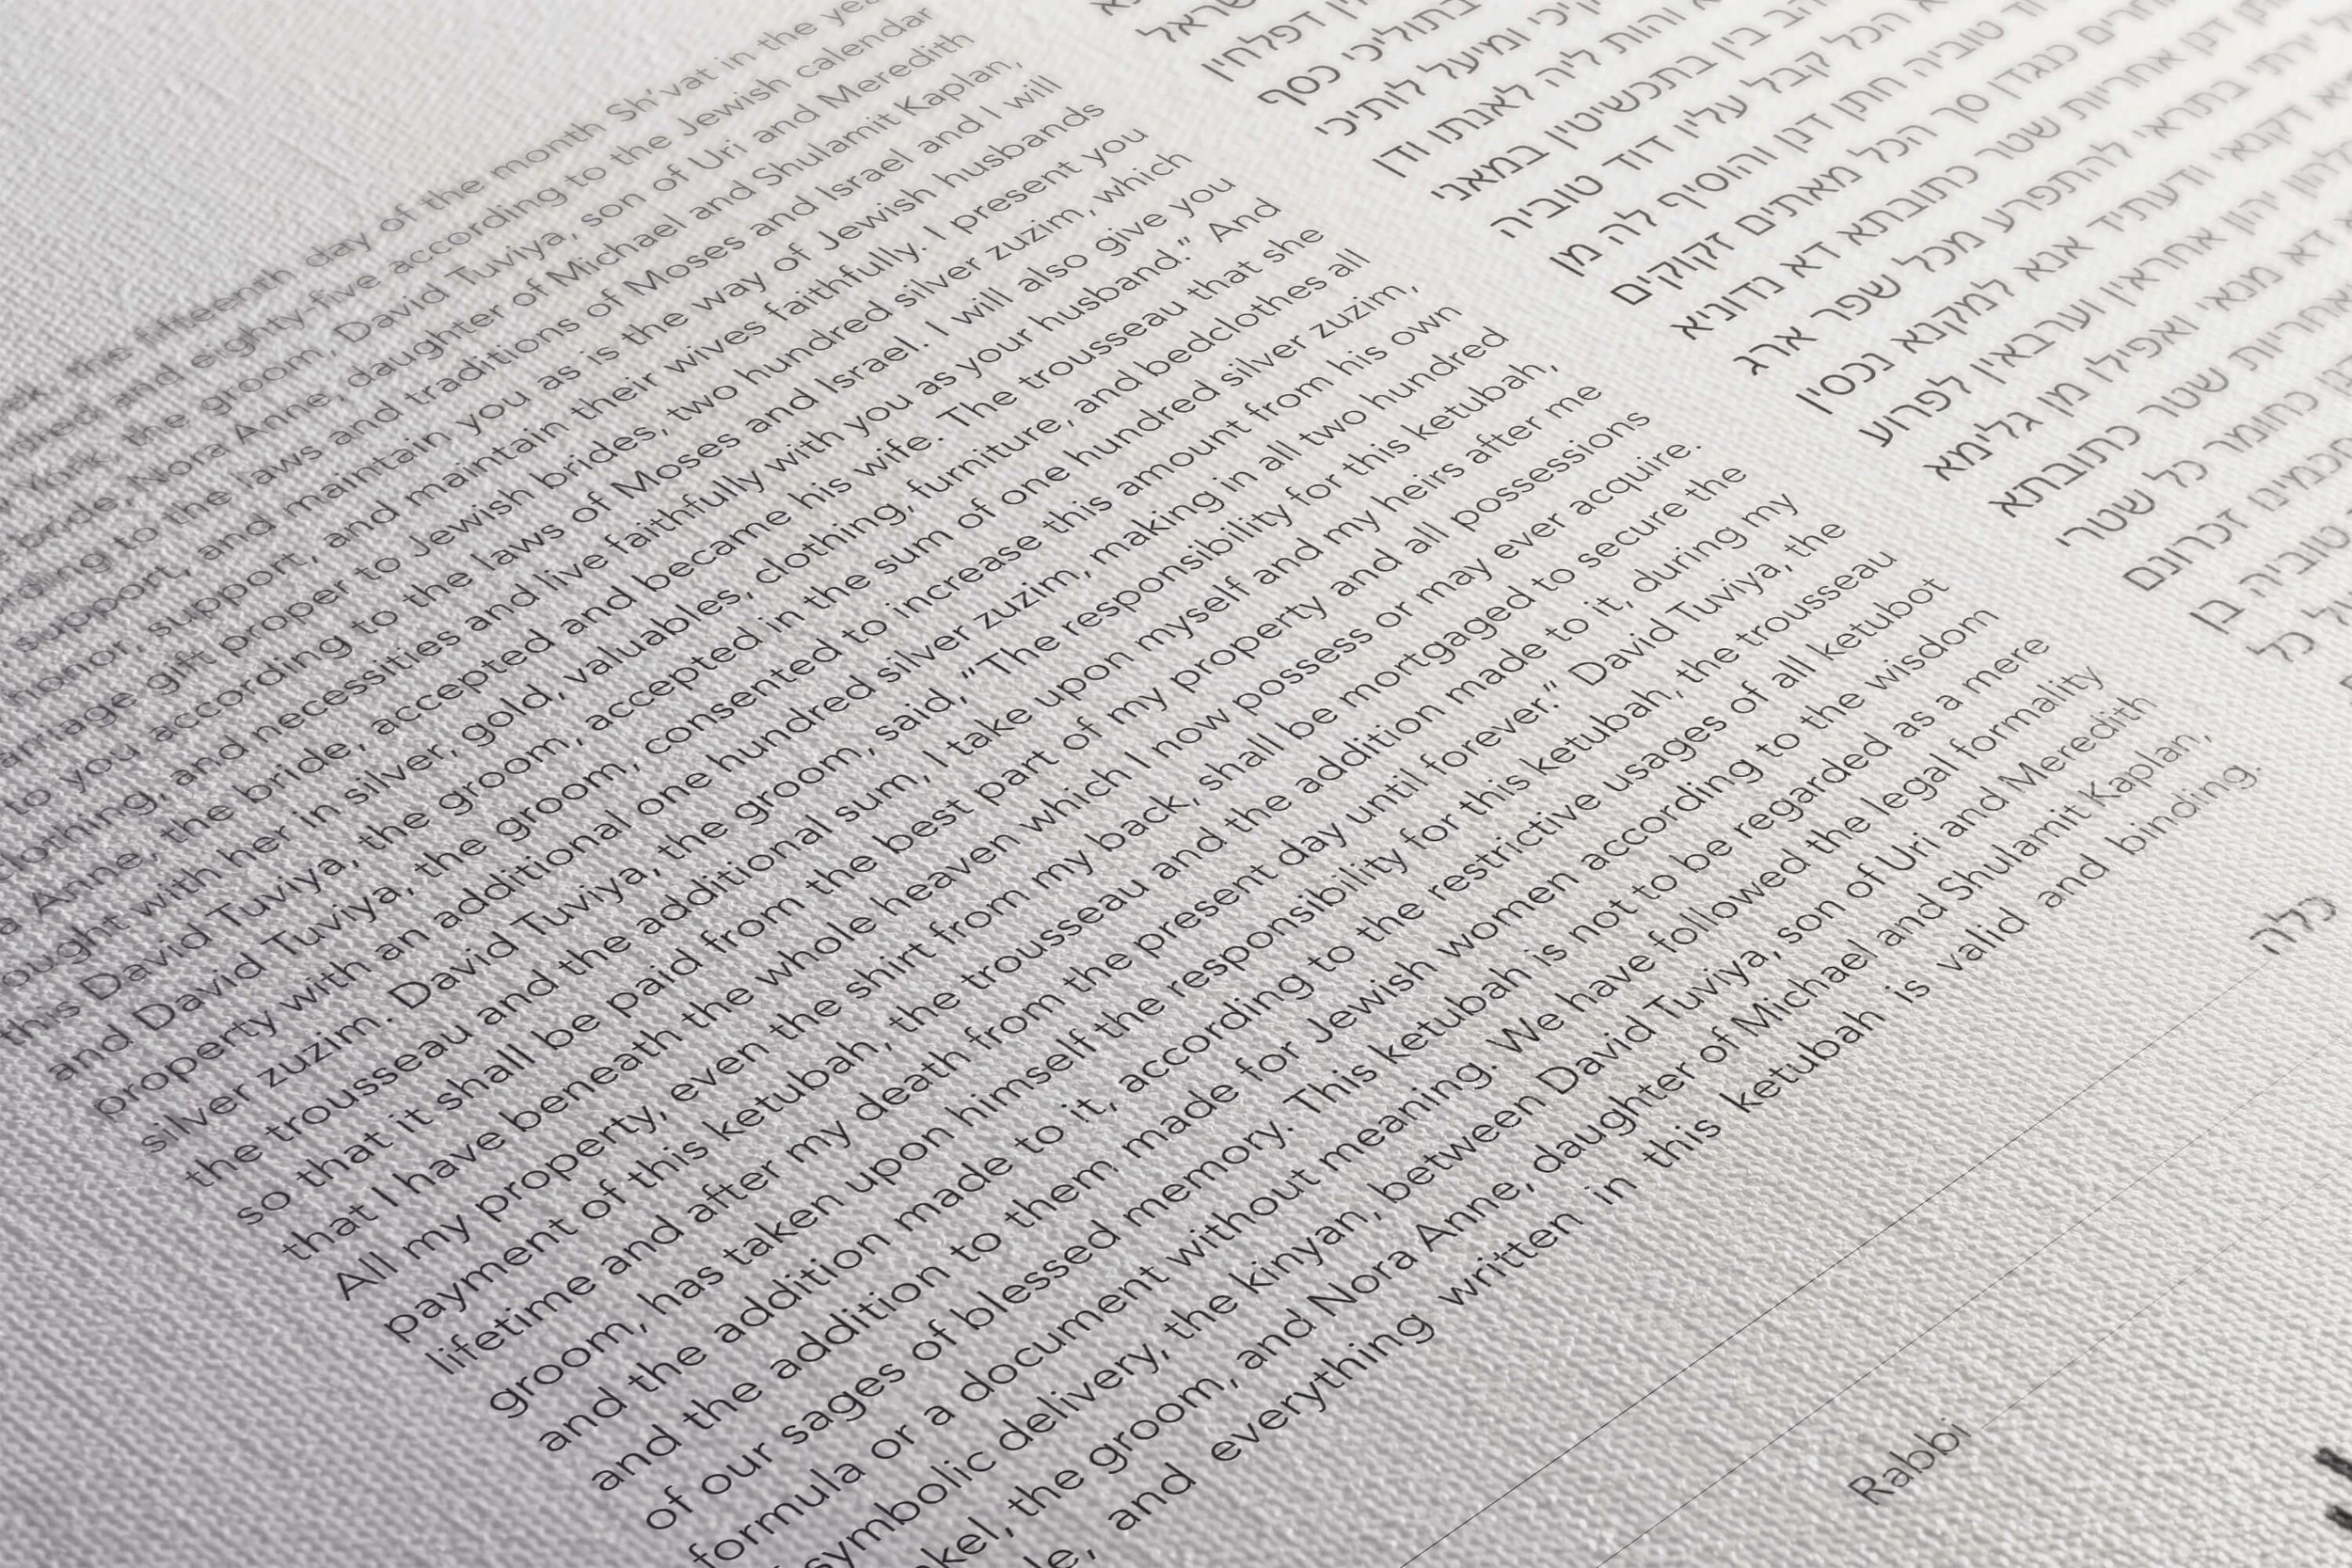 the fifteenth day of the month Sh'vat in the
and eighty-five according to the Jewish calendar
York, the groom, David Tuviya, son of Uri and Meredith
bride, Nora Anne, daughter of Michael and Shulamit Kaplan,
to the laws and traditions of Moses and Israel and I will
support, and maintain you as is the way of Jewish husbands
honor, support, and maintain their wives faithfully. I present you
gift proper to Jewish brides, two hundred silver zuzim, which
to you according to the laws of Moses and Israel. I will also give you
clothing, and necessities and live faithfully with you as your husband." And
Anne, the bride, accepted and became his wife. The trousseau that she
with her in silver, gold, valuables, clothing, furniture, and bedclothes all
this David Tuviya, the groom, accepted in the sum of one hundred silver zuzim,
and David Tuviya, the groom, consented to increase this amount from his own
property with an additional one hundred silver zuzim, making in all two hundred
silver zuzim. David Tuviya, the groom, said, "The responsibility for this ketubah,
the trousseau and the additional sum, I take upon myself and my heirs after me
so that it shall be paid from the best part of my property and all possessions
that I have beneath the whole heaven which I now possess or may ever acquire.
All my property, even the shirt from my back, shall be mortgaged to secure the
payment of this ketubah, the trousseau and the addition made to it, during my
lifetime and after my death from the present day until forever." David Tuviya, the
groom, has taken upon himself the responsibility for this ketubah, the trousseau
and the addition made to it, according to the restrictive usages of all ketubot
and the addition to them made for Jewish women according to the wisdom
of our sages of blessed memory. This ketubah is not to be regarded as a mere
formula or a document without meaning. We have followed the legal formality
symbolic delivery, the kinyan, between David Tuviya, son of Uri and Meredith
the groom, and Nora Anne, daughter of Michael and Shulamit Kaplan,
and everything written in this ketubah is valid and binding.
דפלחין
בתוליכי כסף
ומיעל לותיכי
והות ליה לאנתו ודן
בין בתכשיטין במאני
הכל קבל עליו דוד טוביה
טוביה חתן דנן והוסיף לה מן
כנגדן סך הכל מאתים זקוקים
דנן אחריות שטר כתובתא דא נדוניא
בתראי להתפרע מכל שפר ארג
דקנאי ודעתיד אנא למקנא נכסין
יהון אחראין וערבאין לפרוע
דא מנאי ואפילו מן גלימא
שטר כתובתא
כחומר כל שטרי
זכרונם
טוביה בן
כל
כלה
Rabbi